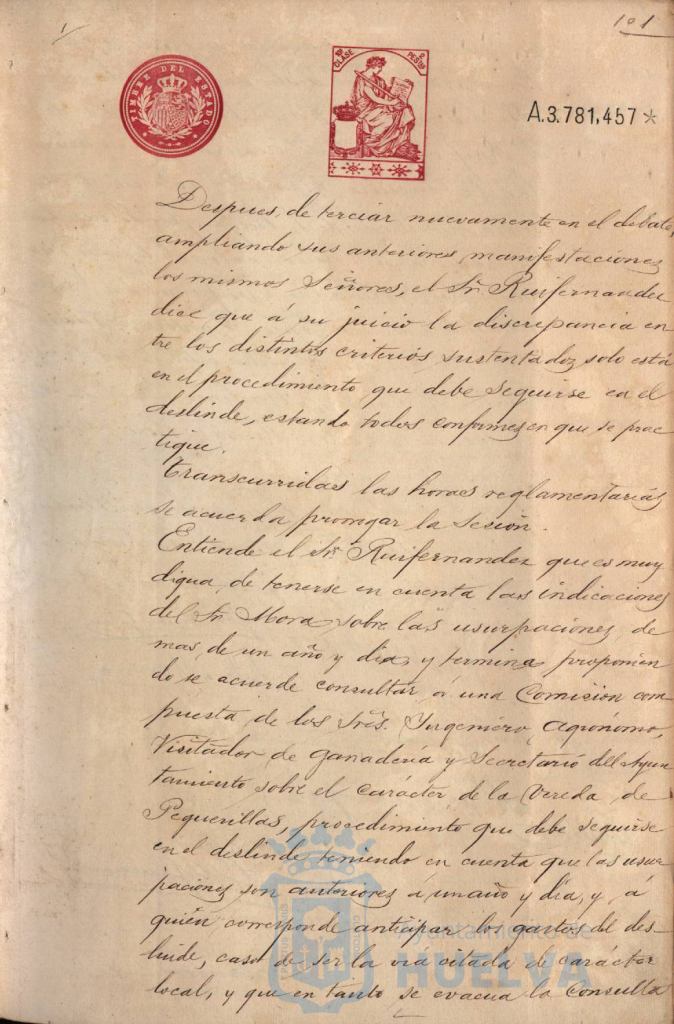 101
TIMBRE DEL ESTADO
CLASE
2 PESETAS
A.3.781,457*
Despues de terciar nuevamente en el debate,
ampliando sus anteriores manifestaciones
los mismos Señores, el Sr Ruifernandez
dice que á su juicio la discrepancia en
tre los distintos criterios sustentados solo está
en el procedimiento que debe seguirse en el
deslinde, estando todos conformes en que se prac
tique.
Transcurridas las horas reglamentarias
se acuerda prorrogar la sesión.
Entiende el Sr Ruifernandez que es muy
digna de tenerse en cuenta las indicaciones
del Sr Mora sobre las usurpaciones de
mas de un año y dia, y termina proponien
do se acuerde consultar á una Comision com
puesta de los Sres. Ingeniero, Agronomo,
Visitador de Ganadería y Secretario del Ayun
tamiento sobre el carácter de la Vereda de
Pequerillas, procedimiento que debe seguirse
en el deslinde teniendo en cuenta que las usur
paciones son anteriores á un año y día, y á
quién corresponde anticipar los gastos del des-
linde, caso de ser la via citada de carácter
local, y que en tanto se evacua la Consulta
Ayuntamiento de
HUELVA